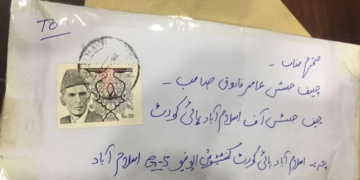 TO
محترم جناب
چیف جسٹس عامر فاروق صاحب -
چیف جسٹس آف اسلام آباد ہائی کورٹ
پتہ:- اسلام آباد ہائی کورٹ کنسٹیٹیوشن ایونیو G-5 اسلام آباد
Rs.30